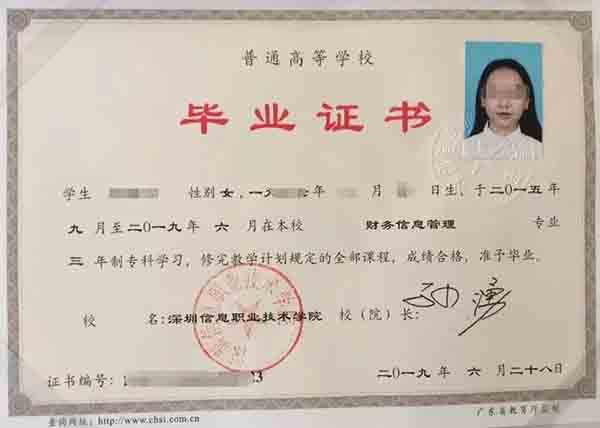 普通高等学校
毕业证书
学生 性别 女，一九 年 月 日生，于二〇一五年
九 月至二〇一九年 六 月在本校 财务信息管理 专业
三 年制专科学习，修完教学计划规定的全部课程，成绩合格，准予毕业。
校 名：深圳信息职业技术学院 校（院）长：
证书编号： 二〇一九年 六 月二十八日
查询网址：http://www.chsi.com.cn 广东省教育厅监制